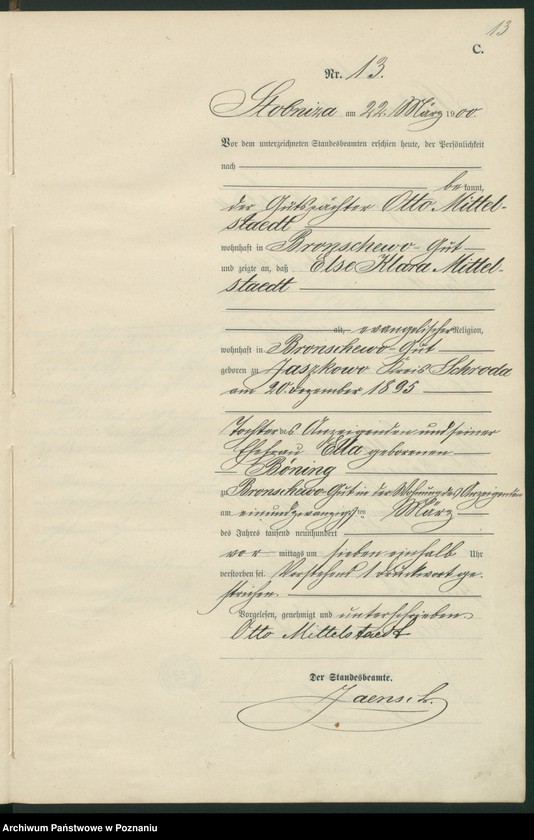 13
C.
Nr. 13.
Slobniza am 22. März 1900.
Vor dem unterzeichneten Standesbeamten erschien heute, der Persönlichkeit
nach
be kannt,
der Gutspächter Otto Mittel-
staedt
wohnhaft in Bronschewo-Gut
und zeigte an, daß Else Klara Mittel-
staedt
alt, evangelischer Religion,
wohnhaft in Bronschewo-Gut
geboren zu Jaszkowo Kreis Schroda
am 20. Dezember 1895
Tochter des Anzeigenden und seiner
Ehefrau Ella geborenen
Böning
zu Bronschewo-Gut in der Wohnung des Anzeigenden
am einundzwanzigsten März
des Jahres tausend neunhundert
vor mittags um sieben einhalb Uhr
verstorben sei. Vorstehend 1 Druckwort ge-
strichen.
Vorgelesen, genehmigt und unterschrieben.
Otto Mittelstaedt
Der Standesbeamte.
Jaensch.
Archiwum Państwowe w Poznaniu